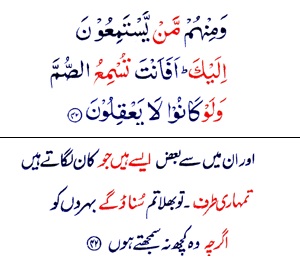 وَمِنْهُمْ مَّنْ يَّسْتَمِعُوْنَ
اِلَيْكَ ؕ اَفَاَنْتَ تُسْمِعُ الصُّمَّ
وَلَوْ كَانُوْا لَا يَعْقِلُوْنَ ﴿۴۲﴾
اور ان میں سے بعض ایسے ہیں جو کان لگاتے ہیں
تمہاری طرف ۔ تو بھلا تم سُنا دُ گے بہروں کو
اگرچہ وہ کچھ نہ سمجھتے ہوں ﴿۴۲﴾